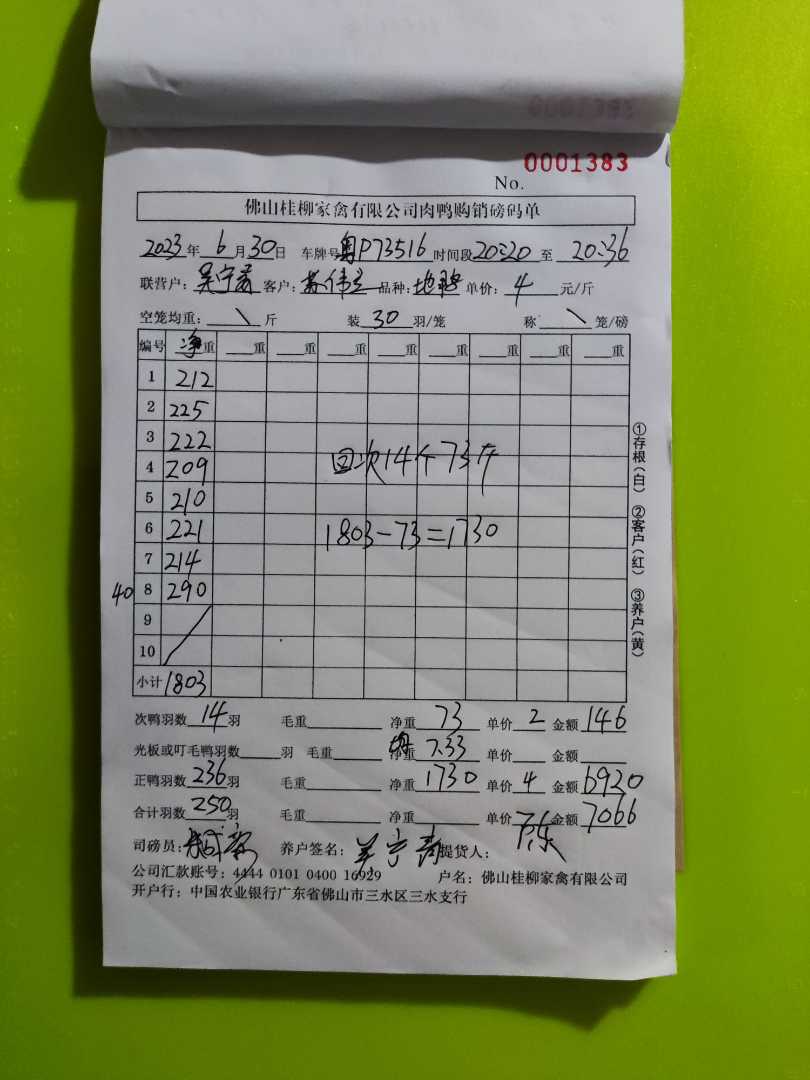 0001383
No.
佛山桂柳家禽有限公司肉鸭购销磅码单
2023年6月30日 车牌号粤P73516 时间段20:20至20:36
联营户: 客户: 品种: 单价:4元/斤
空笼均重:\斤 装30羽/笼 称\笼/磅
编号 净重 重 重 重 重 重 重 重
1 212
2 225
3 222
4 209 回次14个73斤
5 210
6 221 1803-73=1730
7 214
40 8 290
9
10
小计 1803
①存根(白) ②客户(红) ③养户(黄)
次鸭羽数14羽 毛重 净重73 单价2 金额146
光板或叮毛鸭羽数 羽 毛重 净重7.33 单价 金额
正鸭羽数236羽 毛重 净重1730 单价4 金额6920
合计羽数250羽 毛重 净重 单价 金额7066
司磅员: 养户签名: 提货人:
公司汇款账号:4444 0101 0400 16929 户名:佛山桂柳家禽有限公司
开户行:中国农业银行广东省佛山市三水区三水支行